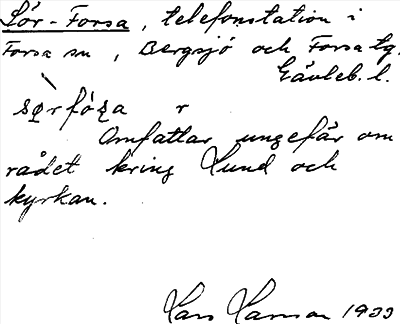 Sör-Forsa, telefonstation i
Forsa sn, Bergsjö och Forsa tg.
Gävleb. l.
r
Omfattar ungefär om
rådet kring Lund och
kyrkan.
Lars Larsson 1933